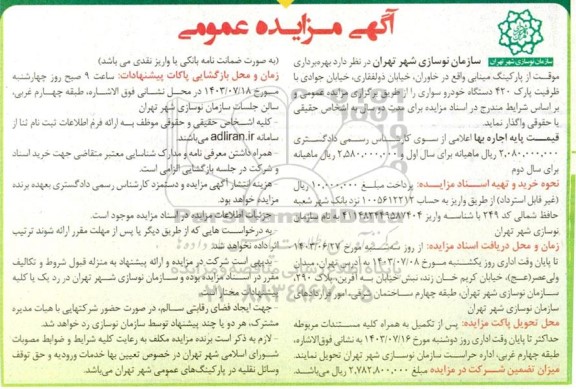 آگهی مزایده عمومی
سازمان نوسازی شهر تهران
سازمان نوسازی شهر تهران در نظر دارد بهره‌برداری
موقت از پارکینگ مینایی واقع در خاوران، خیابان ذولفقاری، خیابان جوادی با
ظرفیت پارک ۴۲۰ دستگاه خودرو سواری را از طریق برگزاری مزایده عمومی و
بر اساس شرایط مندرج در اسناد مزایده برای مدت دو سال به اشخاص حقیقی
یا حقوقی واگذار نماید.
قیمت پایه اجاره بها اعلامی از سوی کارشناس رسمی دادگستری
۲,۰۸۰,۰۰۰,۰۰۰ ریال ماهیانه برای سال اول و ۲,۵۸۰,۰۰۰,۰۰۰ ریال ماهیانه
برای سال دوم
نحوه خرید و تهیه اسناد مزایده: پرداخت مبلغ ۱۰,۰۰۰,۰۰۰ ریال
(غیر قابل استرداد) از طریق واریز به حساب ۱۰۰۵۶۱۲۲۱۲ نزد بانک شهر شعبه
حافظ شمالی کد ۲۴۹ با شناسه واریز
نوسازی شهر تهران
زمان و محل دریافت اسناد مزایده: از روز سه‌شنبه مورخ ۱۴۰۳/۰۶/۲۷
تا پایان وقت اداری روز یکشنبه مورخ ۱۴۰۳/۰۷/۰۸ به آدرس تهران، میدان
ولی‌عصر(عج)، خیابان کریم خان زند، نبش خیابان به آفرین، پلاک ۲۹۰،
سازمان نوسازی شهر تهران، طبقه چهارم ساختمان شرقی، امور قراردادهای
سازمان نوسازی شهر تهران
محل تحویل پاکت مزایده: پس از تکمیل به همراه کلیه مستندات مربوطه
حداکثر تا پایان وقت اداری روز دوشنبه مورخ ۱۴۰۳/۰۷/۱۶ به نشانی فوق‌الاشاره،
طبقه چهارم غربی، اداره حراست سازمان نوسازی شهر تهران تحویل نمایند.
میزان تضمین شرکت در مزایده مبلغ ۲,۷۸۲,۸۰۰,۰۰۰ ریال می‌باشد.
(به صورت ضمانت نامه بانکی یا واریز نقدی می باشد)
زمان و محل بازگشایی پاکات پیشنهادات: ساعت ۹ صبح روز چهارشنبه
مورخ ۱۴۰۳/۰۷/۱۸ در محل نشانی فوق الاشاره، طبقه چهارم غربی،
سالن جلسات سازمان نوسازی شهر تهران
- کلیه اشخاص حقیقی و حقوقی موظف به ارائه فرم اطلاعات ثبت نام ثنا از
سامانه adliran.ir می‌باشند.
- همراه داشتن معرفی نامه و مدارک شناسایی معتبر متقاضی جهت خرید اسناد
و شرکت در جلسه بازگشایی الزامی است.
- هزینه انتشار آگهی مزایده و دستمزد کارشناس رسمی دادگستری بعهده برنده
مزایده خواهد بود.
- جزئیات اطلاعات مزایده در اسناد مزایده موجود است.
- به درخواست هایی که از طریق دیگر یا پس از مهلت مقرر ارائه شوند ترتیب
اثر داده نخواهد شد.
- بدیهی است شرکت در مزایده و ارائه پیشنهاد به منزله قبول شروط و تکالیف
مقرر در اسناد مزایده بوده و سازمان نوسازی شهر تهران در رد یک یا کلیه
پیشنهادات مختار است.
- جهت ایجاد فضای رقابتی سالم، در صورت حضور شرکتهایی با هیات مدیره
مشترک، هر دو یا چند پیشنهاد توسط سازمان نوسازی رد خواهد شد.
- لازم به ذکر است برنده مزایده مکلف به رعایت کلیه شرایط و ضوابط مصوبات
شورای اسلامی شهر تهران در خصوص تعیین بها خدمات ورودیه و حق توقف
وسائل نقلیه در پارکینگ‌های عمومی شهر تهران می‌باشد.